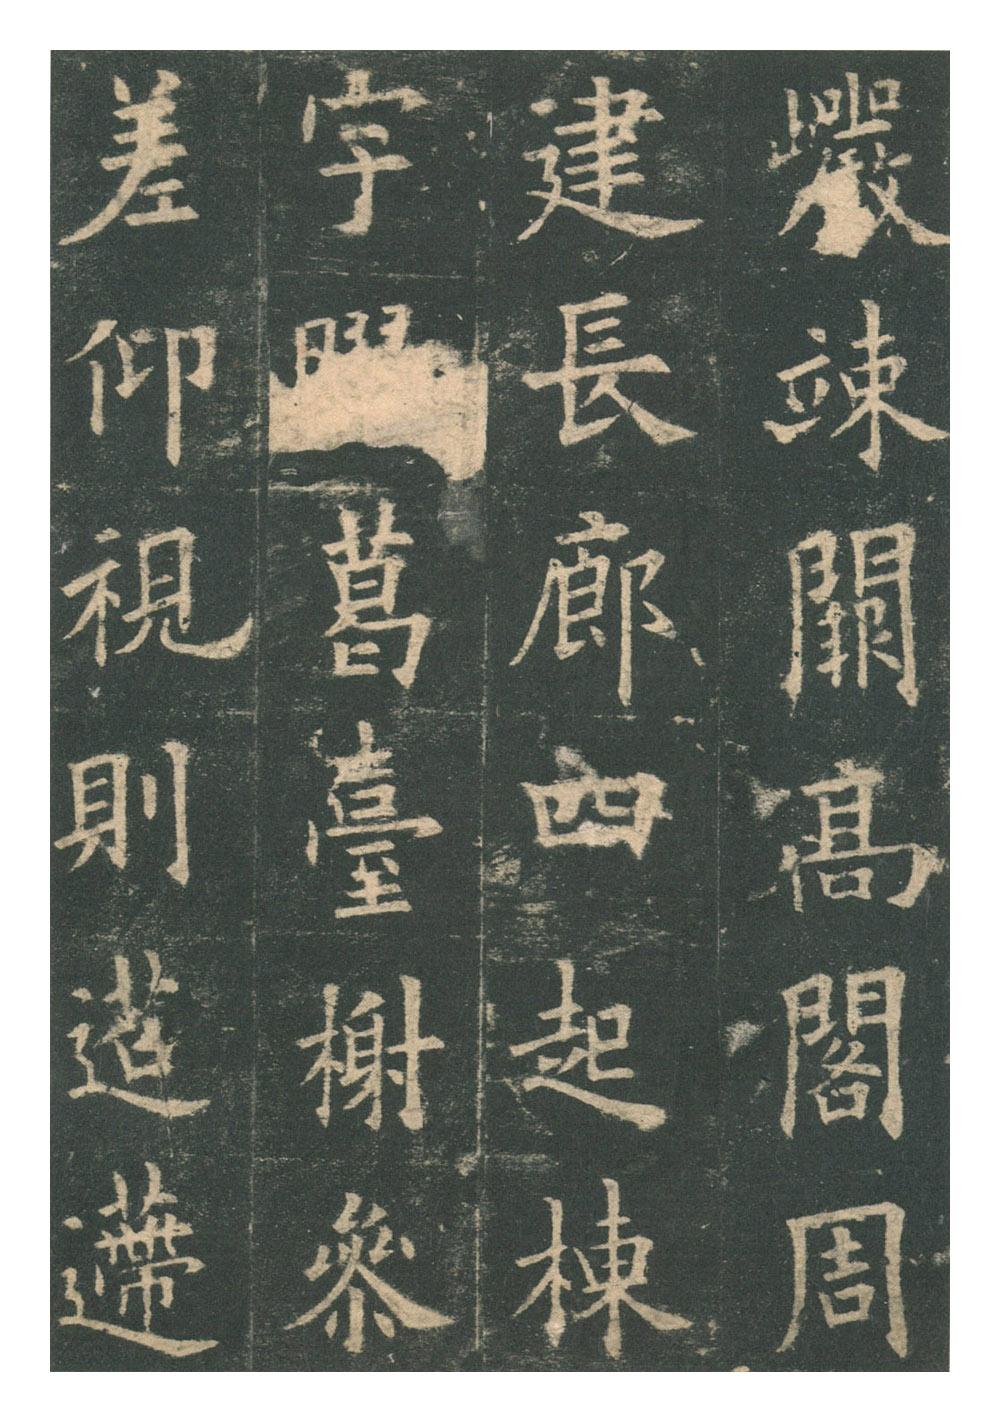 巖竦闕高閣周
建長廊四起棟
宇膠葛臺榭參
差仰視則迢遰